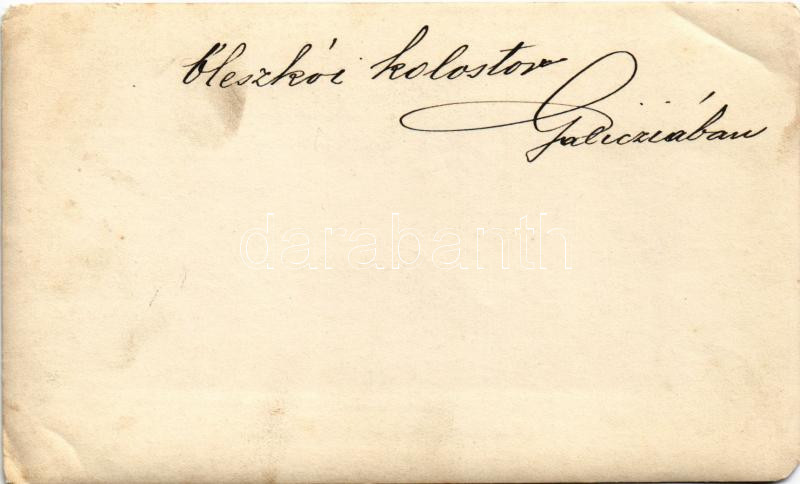 Oleszkói kolostor
Galicziában
darabanth